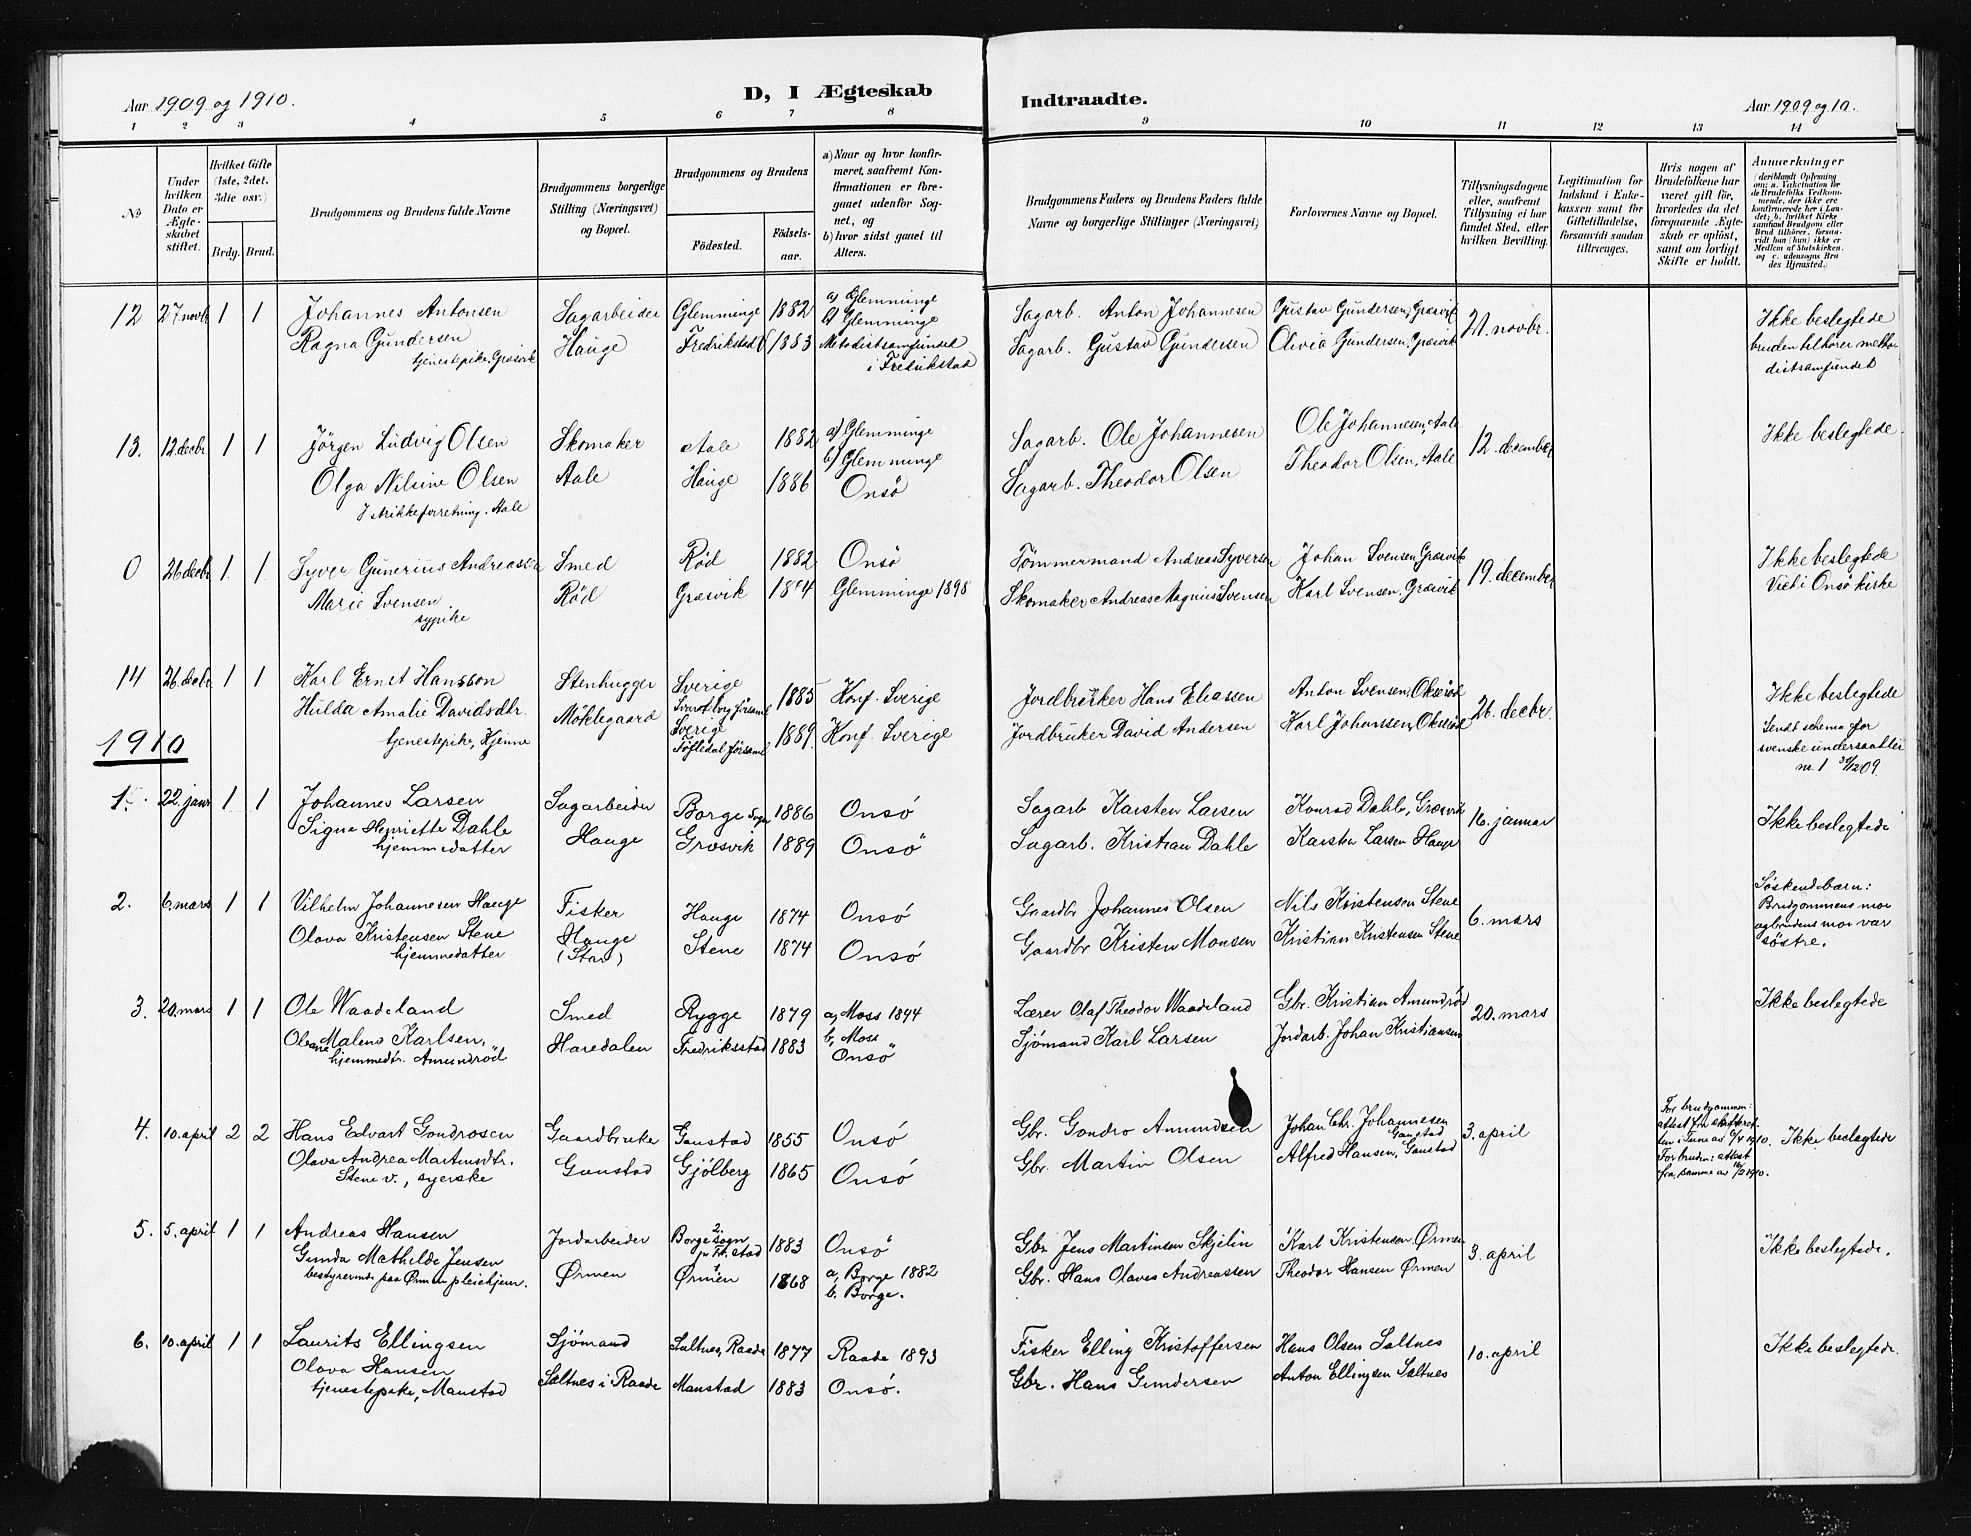 Aar 1909 og 1910.
D, I Ægteskab
Indtraadte.
Aar 1909 og 10.
1 2 3 4 5 6 7 8 9 10 11 12 13 14
No
Under hvilken Dato er Ægteskabet stiftet.
Hvilket Gifte (1ste, 2det, 3die osv.)
Brdg. Brud.
Brudgommens og Brudens fulde Navne
Brudgommens borgerlige Stilling (Næringsvei) og Bopæl.
Brudgommens og Brudens
Fødested.
Fødselsaar.
a) Naar og hvor konfirmeret, saafremt Konfirmationen er foregaaet udenfor Sognet, og
b) hvor sidst gaaet til Alters.
Brudgommens Faders og Brudens Faders fulde Navne og borgerlige Stillinger (Næringsvei)
Forlovernes Navne og Bopæl.
Tillysningsdagene eller, saafremt Tillysning ei har fundet Sted, efter hvilken Bevilling.
Legitimation for Indskud i Enkekassen samt for Giftetilladelse, forsaavidt saadan tiltrænges.
Hvis nogen af Brudefolkene har været gift før, hvorledes da det foregaaende Ægteskab er opløst, samt om lovligt Skifte er holdt.
Anmærkninger (deriblandt Oplysning om: a. Vakcination for de Brudefolks Vedkommende, der ikke ere konfirmerede her i Landet; b. hvilket Kirkesamfund Brudgom eller Brud tilhører, forsaavidt han (hun) ikke er Medlem af Statskirken, og c. udensogns Brudes Hjemsted.)
12 27. novb 1 1 Johannes Antonsen Sagarbeider Glemminge 1882 a) Glemminge b) Glemminge Sagarb. Anton Johannesen Gustav Gundersen, Græsvik 21 novbr. Ikke beslegtede
Ragna Gundersen Hauge Fredrikstad 1883 Metodistsamfundet i Fredrikstad Sagarb. Gustav Gundersen Olivia Gundersen, Græsvik bruden tilhører methodistsamfundet
tjenestepike, Græsvik
13. 12 decbr 1 1 Jörgen Ludvig Olsen Skomaker Aale 1882 a) Glemminge b) Glemminge Sagarb. Ole Johannesen Ole Johannesen, Aale 12. december Ikke beslegtede
Olga Nilsine Olsen Aale Hauge 1886 Onsö Sagarb. Theodor Olsen Theodor Olsen, Aale
I strikkeforretning. Aale
0 26 decbr 1 1 Syver Gunerius Andreassen Smed Rød 1882 Onsö Tømmermand Andreas Syversen Johan Svensen, Græsvik 19. december Ikke beslegtede
Marie Svensen Rød Græsvik Glemminge 1898 Skomaker Andreas Magnus Svensen Karl Svensen, Græsvik Viet i Onsø kirke
sypike
14 26. decbr 1 1 Karl Ernst Hansson Stenhugger Sverige 1885 Konf. Sverige Jordbruker Hans Eliassen Anton Svensen, Okserød 26. decbr. Ikke beslegtede
Hulda Amalie Davidsdtr. Møklegaard Sverige 1889 Konf. Sverige Jordbruker David Andersen Karl Johansen, Okserød Sendt schema for svenske undersaatter nr. 1
tjenestepike, Kjenne
1910
1. 22. janr 1 1 Johannes Larsen Sagarbeider Borge Sogn 1886 Onsö Sagarb Karsten Larsen Konrad Dahle, Græsvik 16. januar Ikke beslegtede
Signe Henriette Dahle Hauge Græsvik 1889 Onsö Sagarb. Kristian Dahle Karsten Larsen Hauge
hjemmedatter
2. 6. mars 1 1 Vilhelm Johannesen Hauge Fisker Hauge 1874 Onsö Gaardbr Johannes Olsen Nils Kristensen Stene 6. mars Søskendebarn:
Olava Kristensen Stene Hauge Stene 1874 Onsö Gaardbr Kristen Monsen Kristian Kristensen Stene Brudgommens mor og brudens mor var søstre.
hjemmedatter
3. 20. mars 1 1 Ole Waadeland Smed Rygge 1879 a, Moss 1894 b, Moss Lærer Olaf Theodor Waadeland Gbr. Kristian Amundrød 20. mars Ikke beslegtede
Oleane Malene Karlsen, Haredalen Fredriksstad 1883 Onsö Sjömand Karl Larsen Jordarb. Johan Kristiansen
hjemmedtr. Amundrød
4. 10. april 2 2 Hans Edvart Gondrosen Gaardbruker Ganstad 1855 Onsö Gbr. Gondro Amundsen Johan Chr. Johannesen Ganstad 3. april For brudgommen: attest fra skifteretten i Tune av 6/4 1910. Ikke beslegtede
Olava Andrea Martinsdtr. Ganstad Gjölberg 1865 Onsö Gbr. Martin Olsen Alfred Hansen, Ganstad For bruden: attest fra samme av
Stene v., syerske
5. 5. april 1 1 Andreas Hansen Jordarbeider Borge sogn 1883 Onsö Gbr Jens Martinsen Skjelin Karl Kristensen Ørmen 3. april Ikke beslegtede.
Gunda Mathilde Jensen Ørmen Ørmen 1868 a, Borge 1882 b. Borge. Gbr. Hans Olaves Andreassen Theodor Hansen Ørmen
bestyrerinde paa Ørmen pleiehjem.
6. 10. april 1 1 Laurits Ellingsen Sjömand Saltnes, Raade 1877 Raade 1893 Fisker Elling Kristoffersen Hans Olsen Saltnes 10. april Ikke beslegtede.
Olava Hansen Saltnes i Raade Manstad 1883 Onsö. Gbr. Hans Gundersen Anton Ellingsen Saltnes
tjenestepike, Manstad